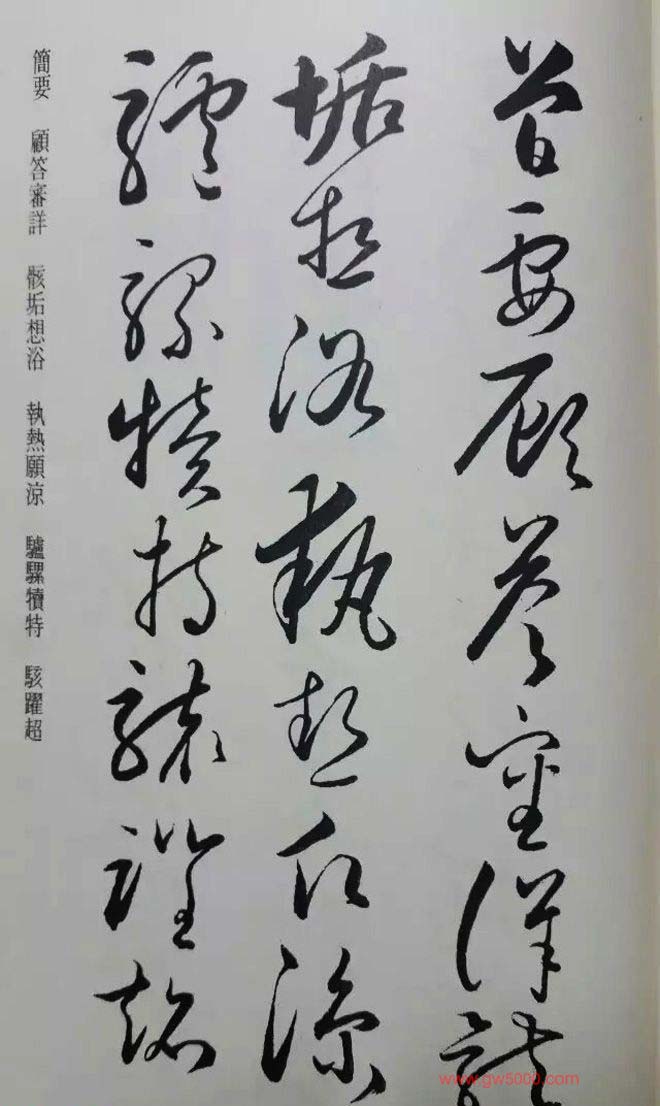 簡要顧答審詳骸
垢想浴執熱願涼
驢騾犢特駭躍超
簡要 顧答審詳 骸垢想浴 執熱願涼 驢騾犢特 駭躍超
www.gw5000.com